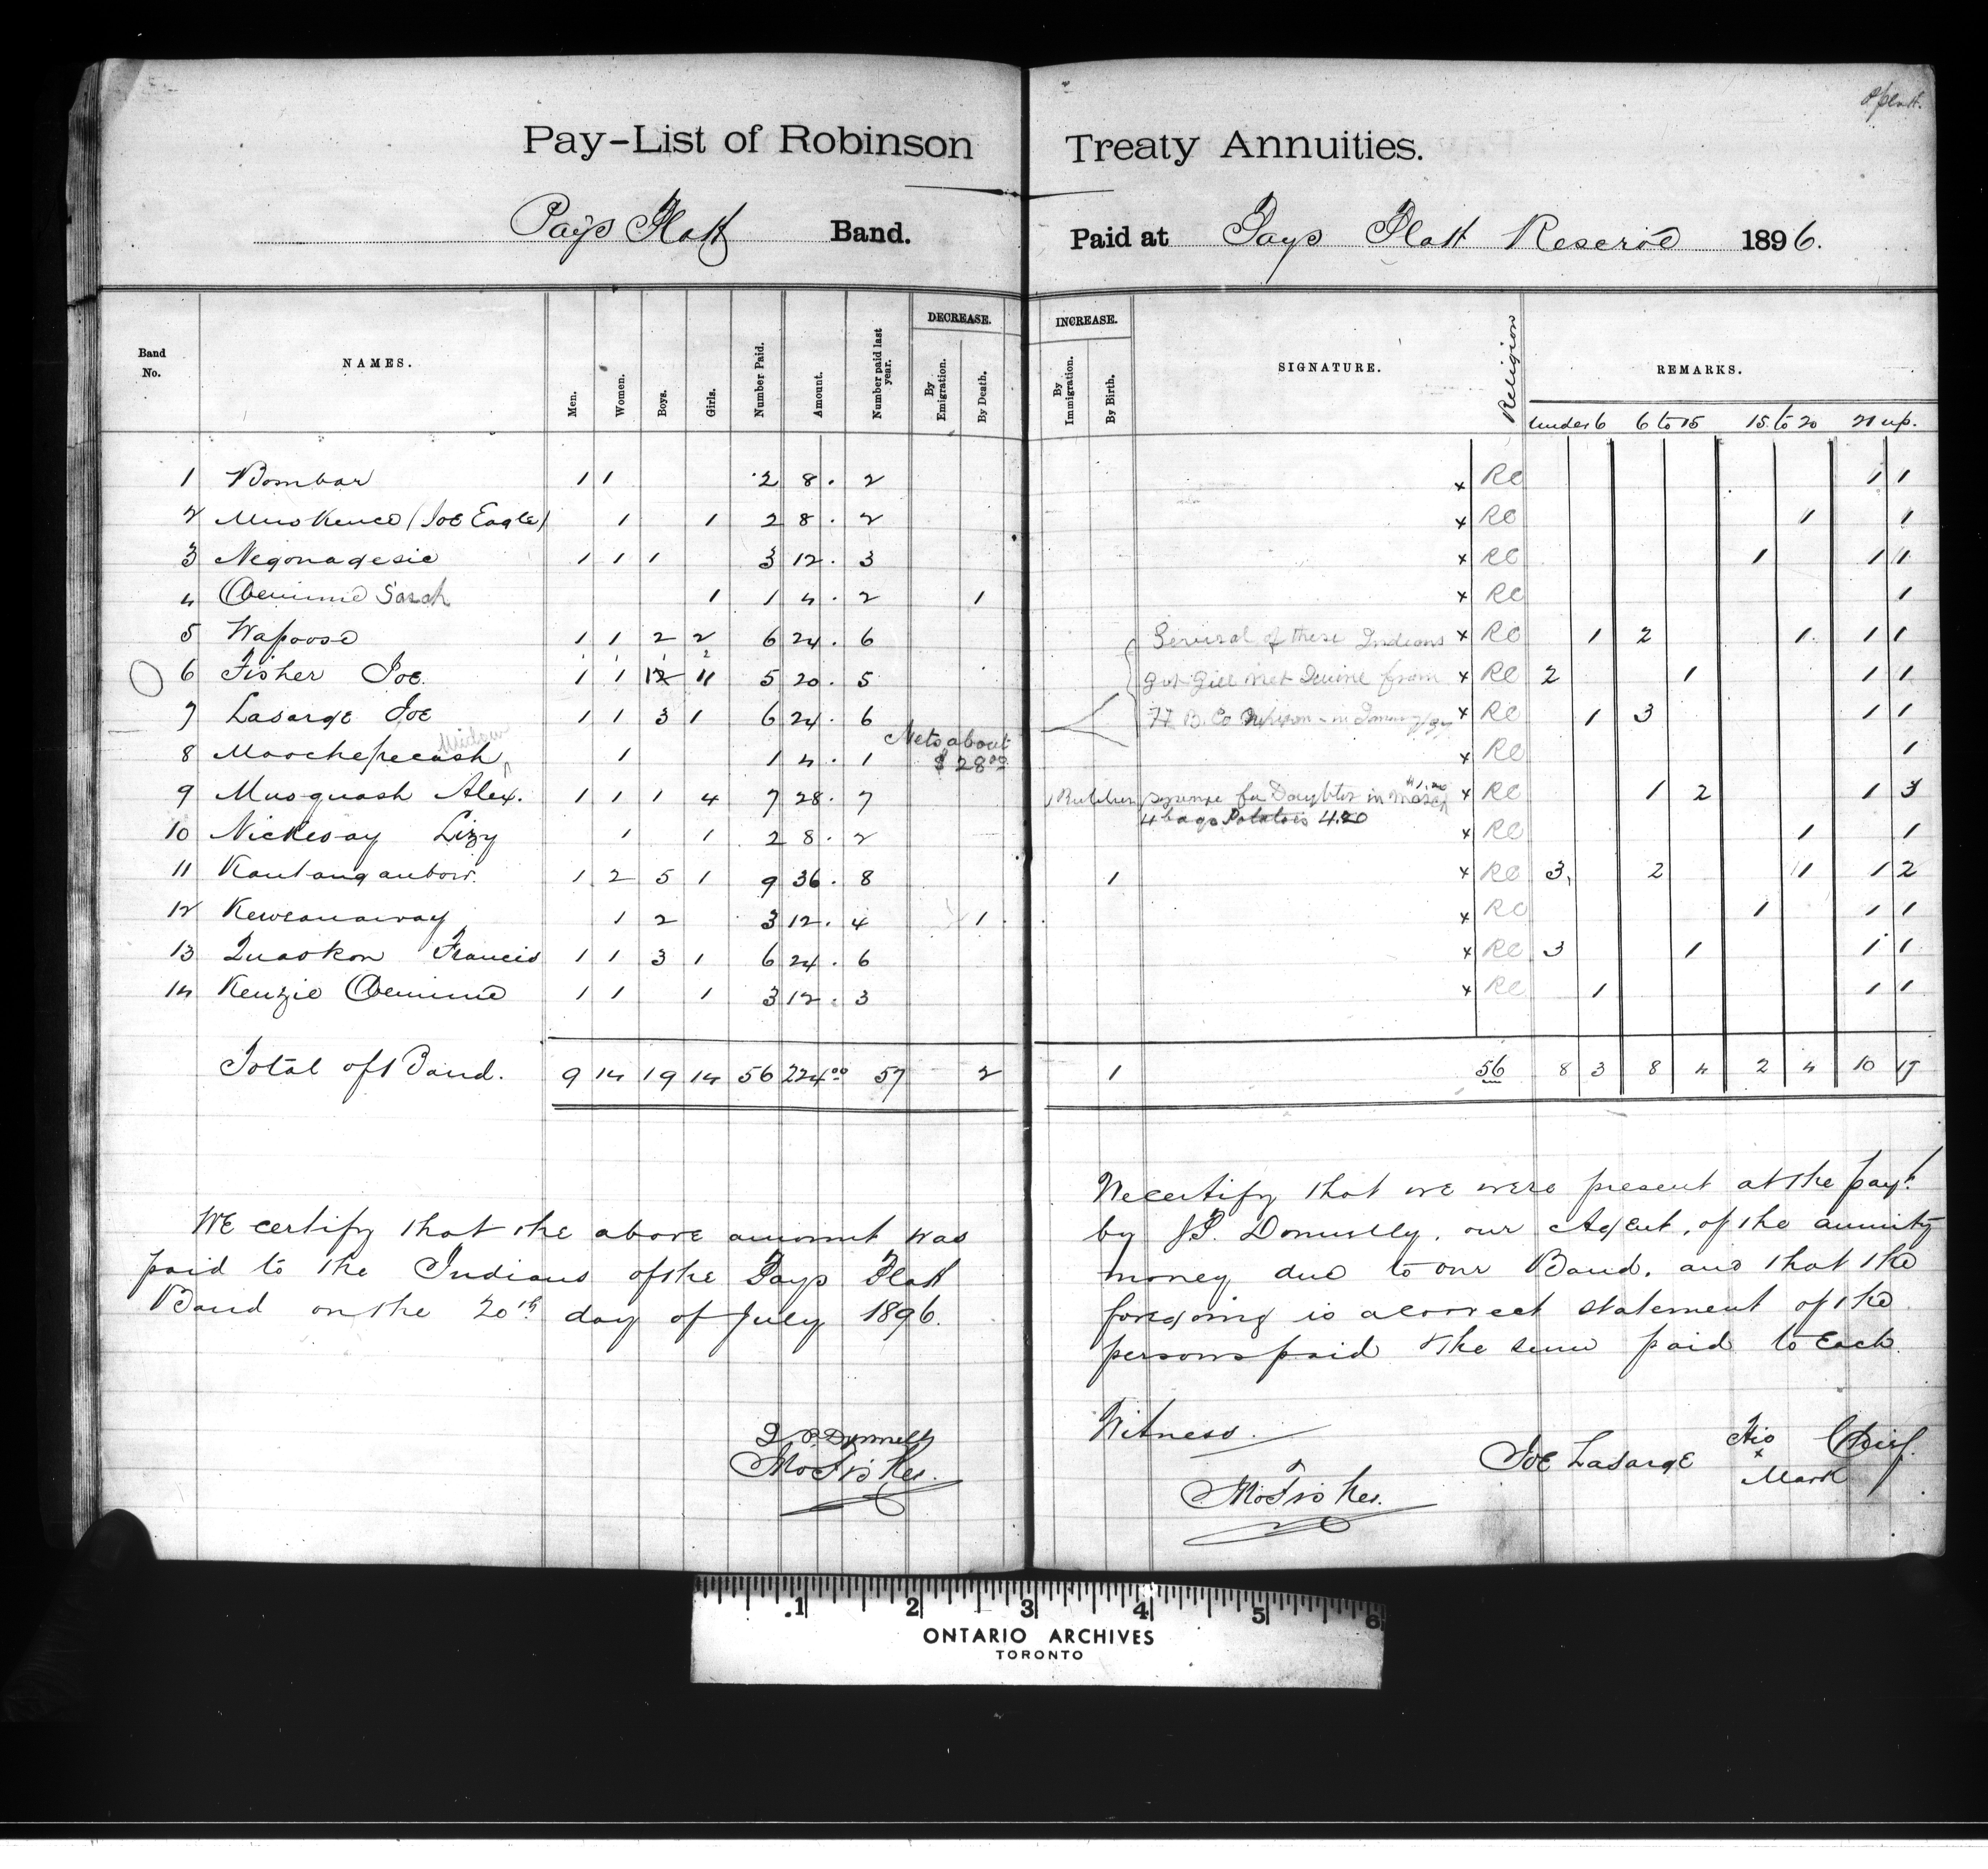 Pay-List of Robinson Treaty Annuities.
Pays Platt Band. Paid at Pays Platt Reserve 1896.
Band No. NAMES. Men. Women. Boys. Girls. Number Paid. Amount. Number paid last year. DECREASE. By Emigration. By Death. INCREASE. By Immigration. By Birth. SIGNATURE. Religion REMARKS.
under 6 6 to 15 15 to 20 21 up.
1 Bombar 1 1 2 8. 2 x RC 1 1
2 (Joe Eagle) 1 1 2 8. 2 x RC 1 1
3 Negonagesic 1 1 1 3 12. 3 x RC 1 1 1
4 Sarah 1 1 4. 2 1 x RC 1
5 Wapoose 1 1 2 2 6 24. 6 Several of these Indians x RC 1 2 1 1 1
6 Fisher Joe. 1 1 5 20. 5 got gill net twine from x RC 2 1 1 1
7 Lasarge Joe 1 1 3 1 6 24. 6 H B. Co x RC 1 3 1 1
Widow Nets about
8 Moochepecash 1 1 4. 1 $28.00 x RC 1
9 Musquash Alex. 1 1 1 4 7 28. 7 for Daughter in March x RC 1 2 1 3
4 bags Potatoes 4.20
10 Nickesay Lizy 1 1 2 8. 2 x RC 1 1
11 Kautanganbow. 1 2 5 1 9 36. 8 1 x RC 3 2 1 1 2
12 Keweanaway 1 2 3 12. 4 1 x RC 1 1 1
13 Quaskon Francis 1 1 3 1 6 24. 6 x RC 3 1 1 1
14 Kenzie 1 1 1 3 12. 3 x RC 1 1 1
Total of Band. 9 14 19 14 56 224.00 57 2 1 56 8 3 8 4 2 4 10 17
We certify that the above amount was
paid to the Indians of the Pays Platt
Band on the 20th day of July 1896.
J P Donnelly
We certify that we were present at the payt.
by J.P. Donnelly, our Agent, of the annuity
money due to our Band, and that the
foregoing is a correct statement of the
persons paid & the sum paid to Each.
Witness.
Joe Lasarge His x Mark Chief.
1 2 3 4 5 6
ONTARIO ARCHIVES
TORONTO